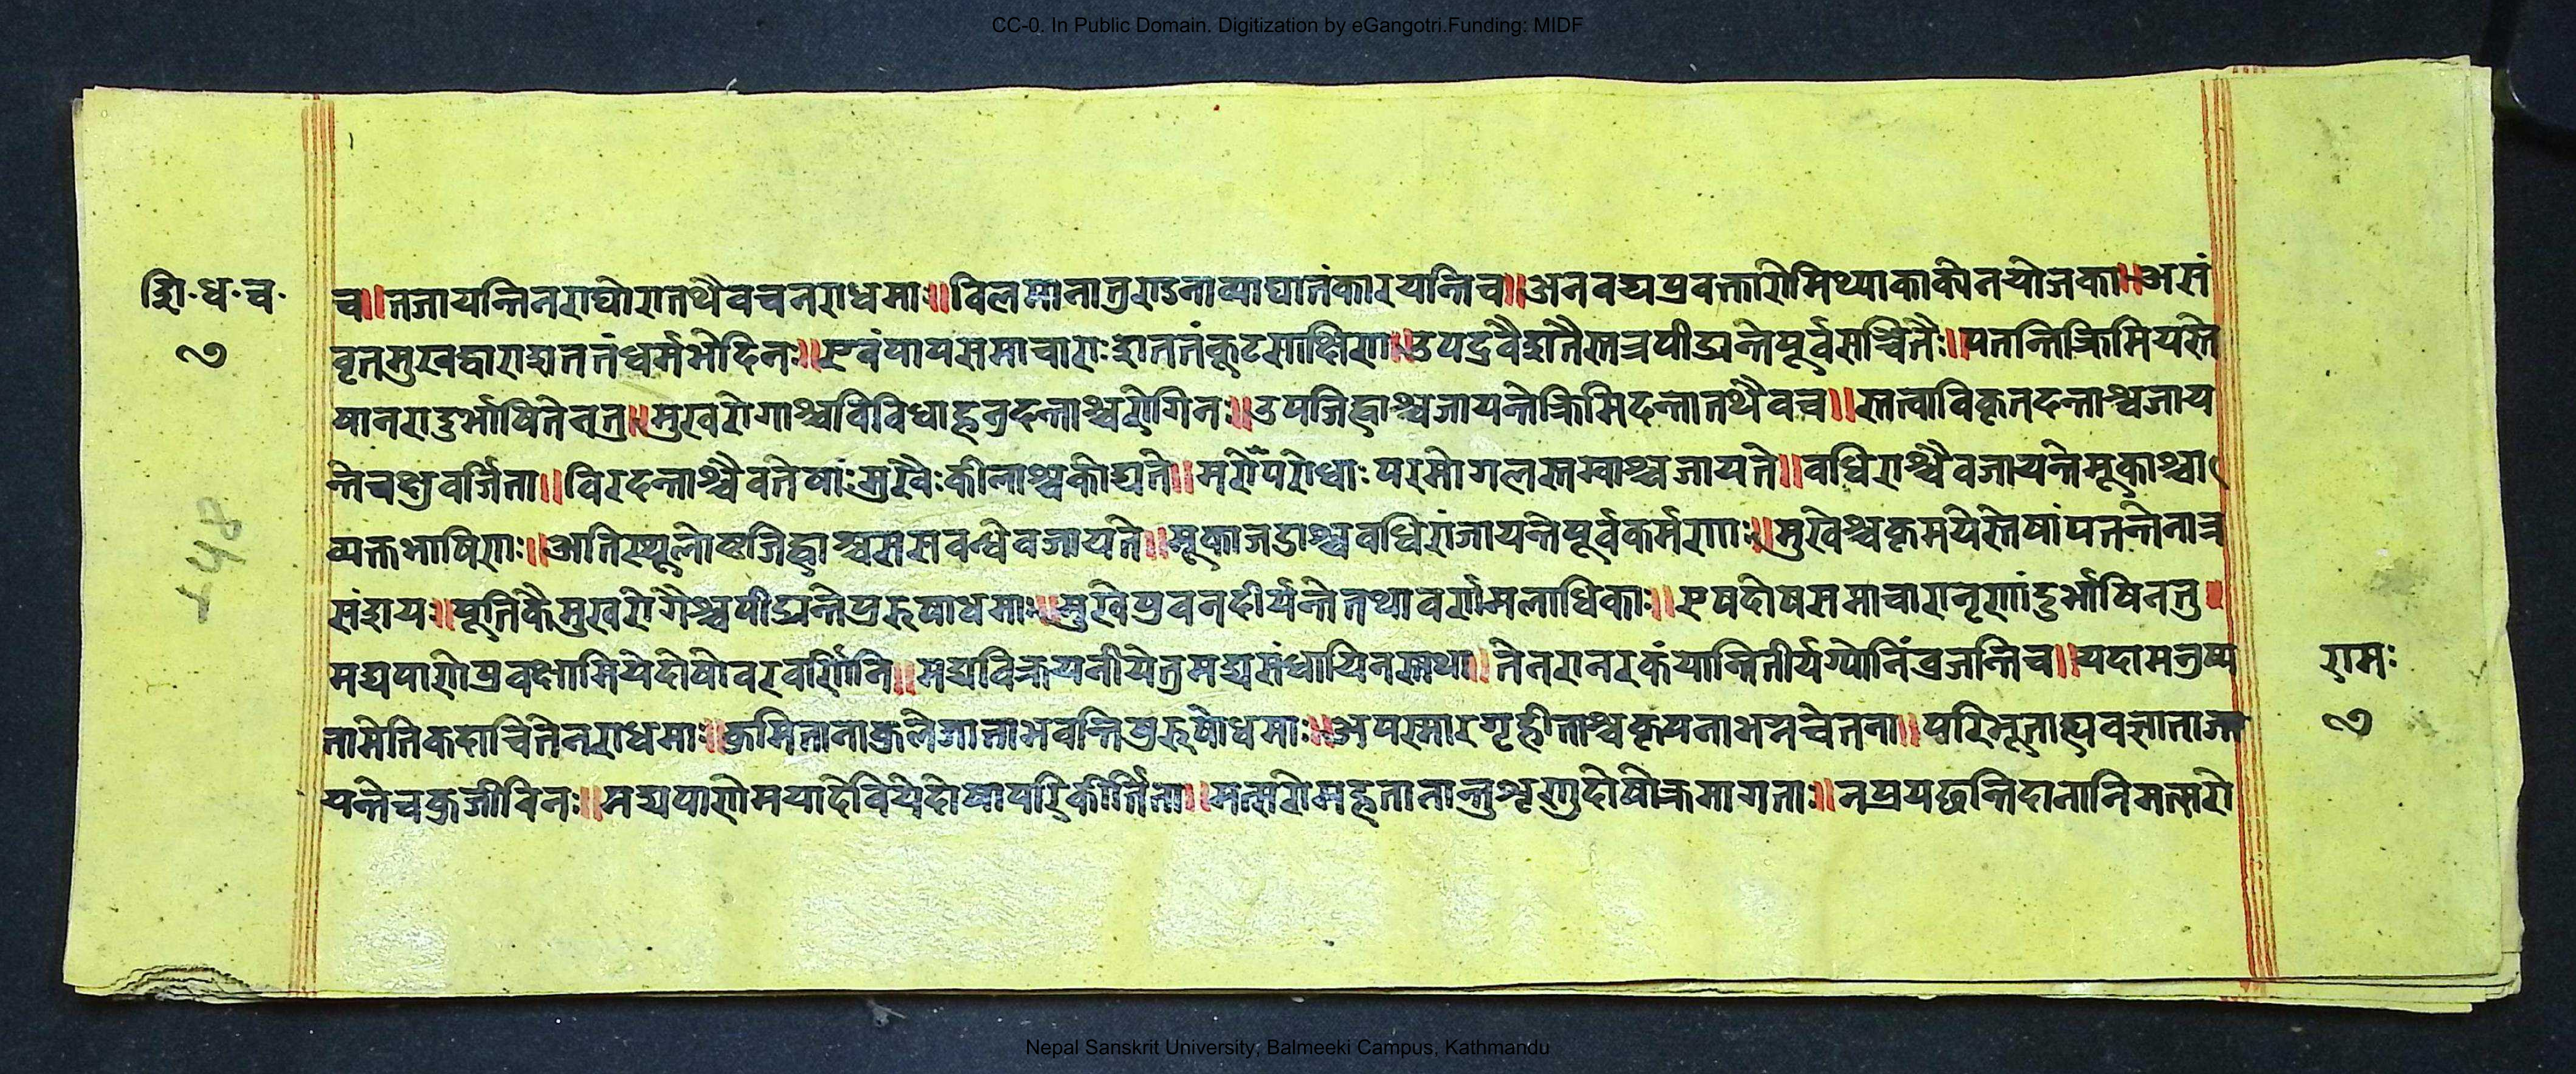 CC-0. In Public Domain. Digitization by eGangotri.Funding: MIDF
शि॰ध॰च॰
७
च॥तजायन्तिनराघोरातथैवचनराधमाः॥विलमानातुराऽनाव्याघातंकारयन्तिच॥अनवद्यप्रवक्तारोमिथ्याकाकोनयोजका॥असं
वृतमुखद्वाराशततंधर्मभेदिनः॥एवंपापसमाचाराःशततंकूटसाक्षिणा॥उपद्रवैशतैस्तत्रपीड्यन्तेपूर्वसञ्चितैः॥पतन्तिक्रिमियस्ते
षानरादुर्भाषितेनतु॥मुखरोगाश्चविविधाहनुदन्ताश्चरोगिनः॥उपजिह्वाश्चजायन्तेक्रिमिदन्तातथैवच॥स्तत्वाविकृतदन्ताश्चजाय
न्तेचक्षुवर्जिता॥विरदन्ताश्चैवतेषांःमुखैःकीलाश्चकोद्यते॥मरोपरोधाःपरमोगलस्तम्वाश्चजायते॥वधिराश्चैवजायन्तेमूकाश्चा
व्यक्तभाषिणाः॥अतिस्थूलोष्ठजिह्वाश्चससवन्धेवजायते॥मूकाजडाश्चवधिरांजायन्तेपूर्वकर्मणाः॥मुखेश्चकृमयेस्तेषांपतन्तेनात्र
संशयः॥पूतिकैमुखरोगैश्चपीड्यन्तेपुरुषाधमाः॥मुखेप्रवनदीर्यन्तेतथावर्णामलाधिकाः॥एषदोषसमाचारानृणांदुर्भाषिनतु॥
मद्यपाणेप्रवक्षामियेदोषोवरवर्णिनि॥मद्यविक्रयनीयेतुमद्यसंधायिनस्तथा॥तेनरानरकंयान्तितीर्यग्योनिंव्रजन्तिच॥यदामनुष्य
तामेतिकदाचितेनराधमाः॥क्रमितानाकुलेजाताभवन्तिपुरुषोधमाः॥अपस्मारगृहीताश्चकृपनाभग्नचेतना॥परिभूताह्यवज्ञाताजा
यन्तेचकुजीविनः॥मद्यपाणेमयादेवियेदोषापरिकीर्तिता॥मत्सरोमहृतानान्तुशृणुदोषोक्रमागताः॥नप्रयछन्तिदानानिमत्सरो
रामः
७
Nepal Sanskrit University, Balmeeki Campus, Kathmandu